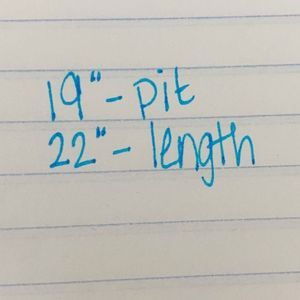 19"-pit
22"-length